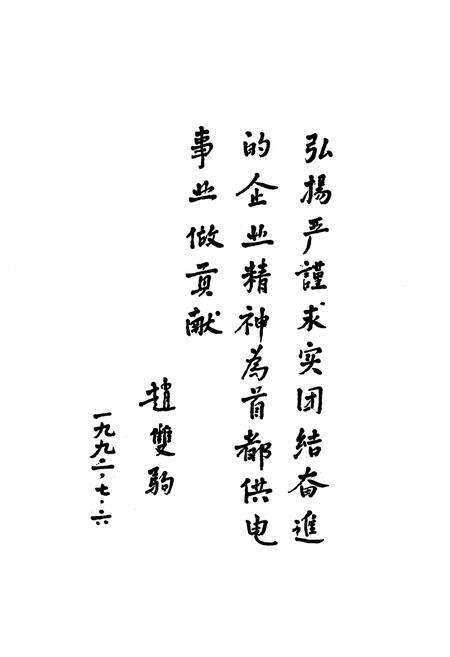 弘揚严謹求实团结奋進
的企业精神為首都供电
事业做贡献
趙雙驹
一九九二.七.六